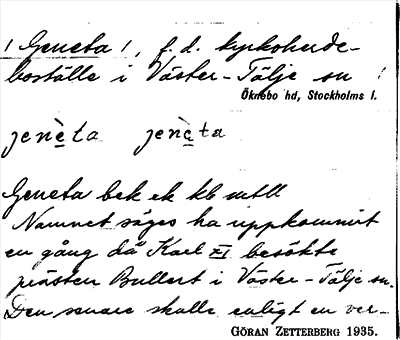 / Geneta /, f. d. kyrkoherde-
boställe i Väster-Tälje sn
Öknebo hd, Stockholms l.
jenèta jenèta
Geneta bek ek kb mtll
Namnet säges ha uppkommit
en gång då Karl XI besökte
prästen Bullert i Väster-Tälje sn.
Den senare skulle enligt en ver-
GÖRAN ZETTERBERG 1935.